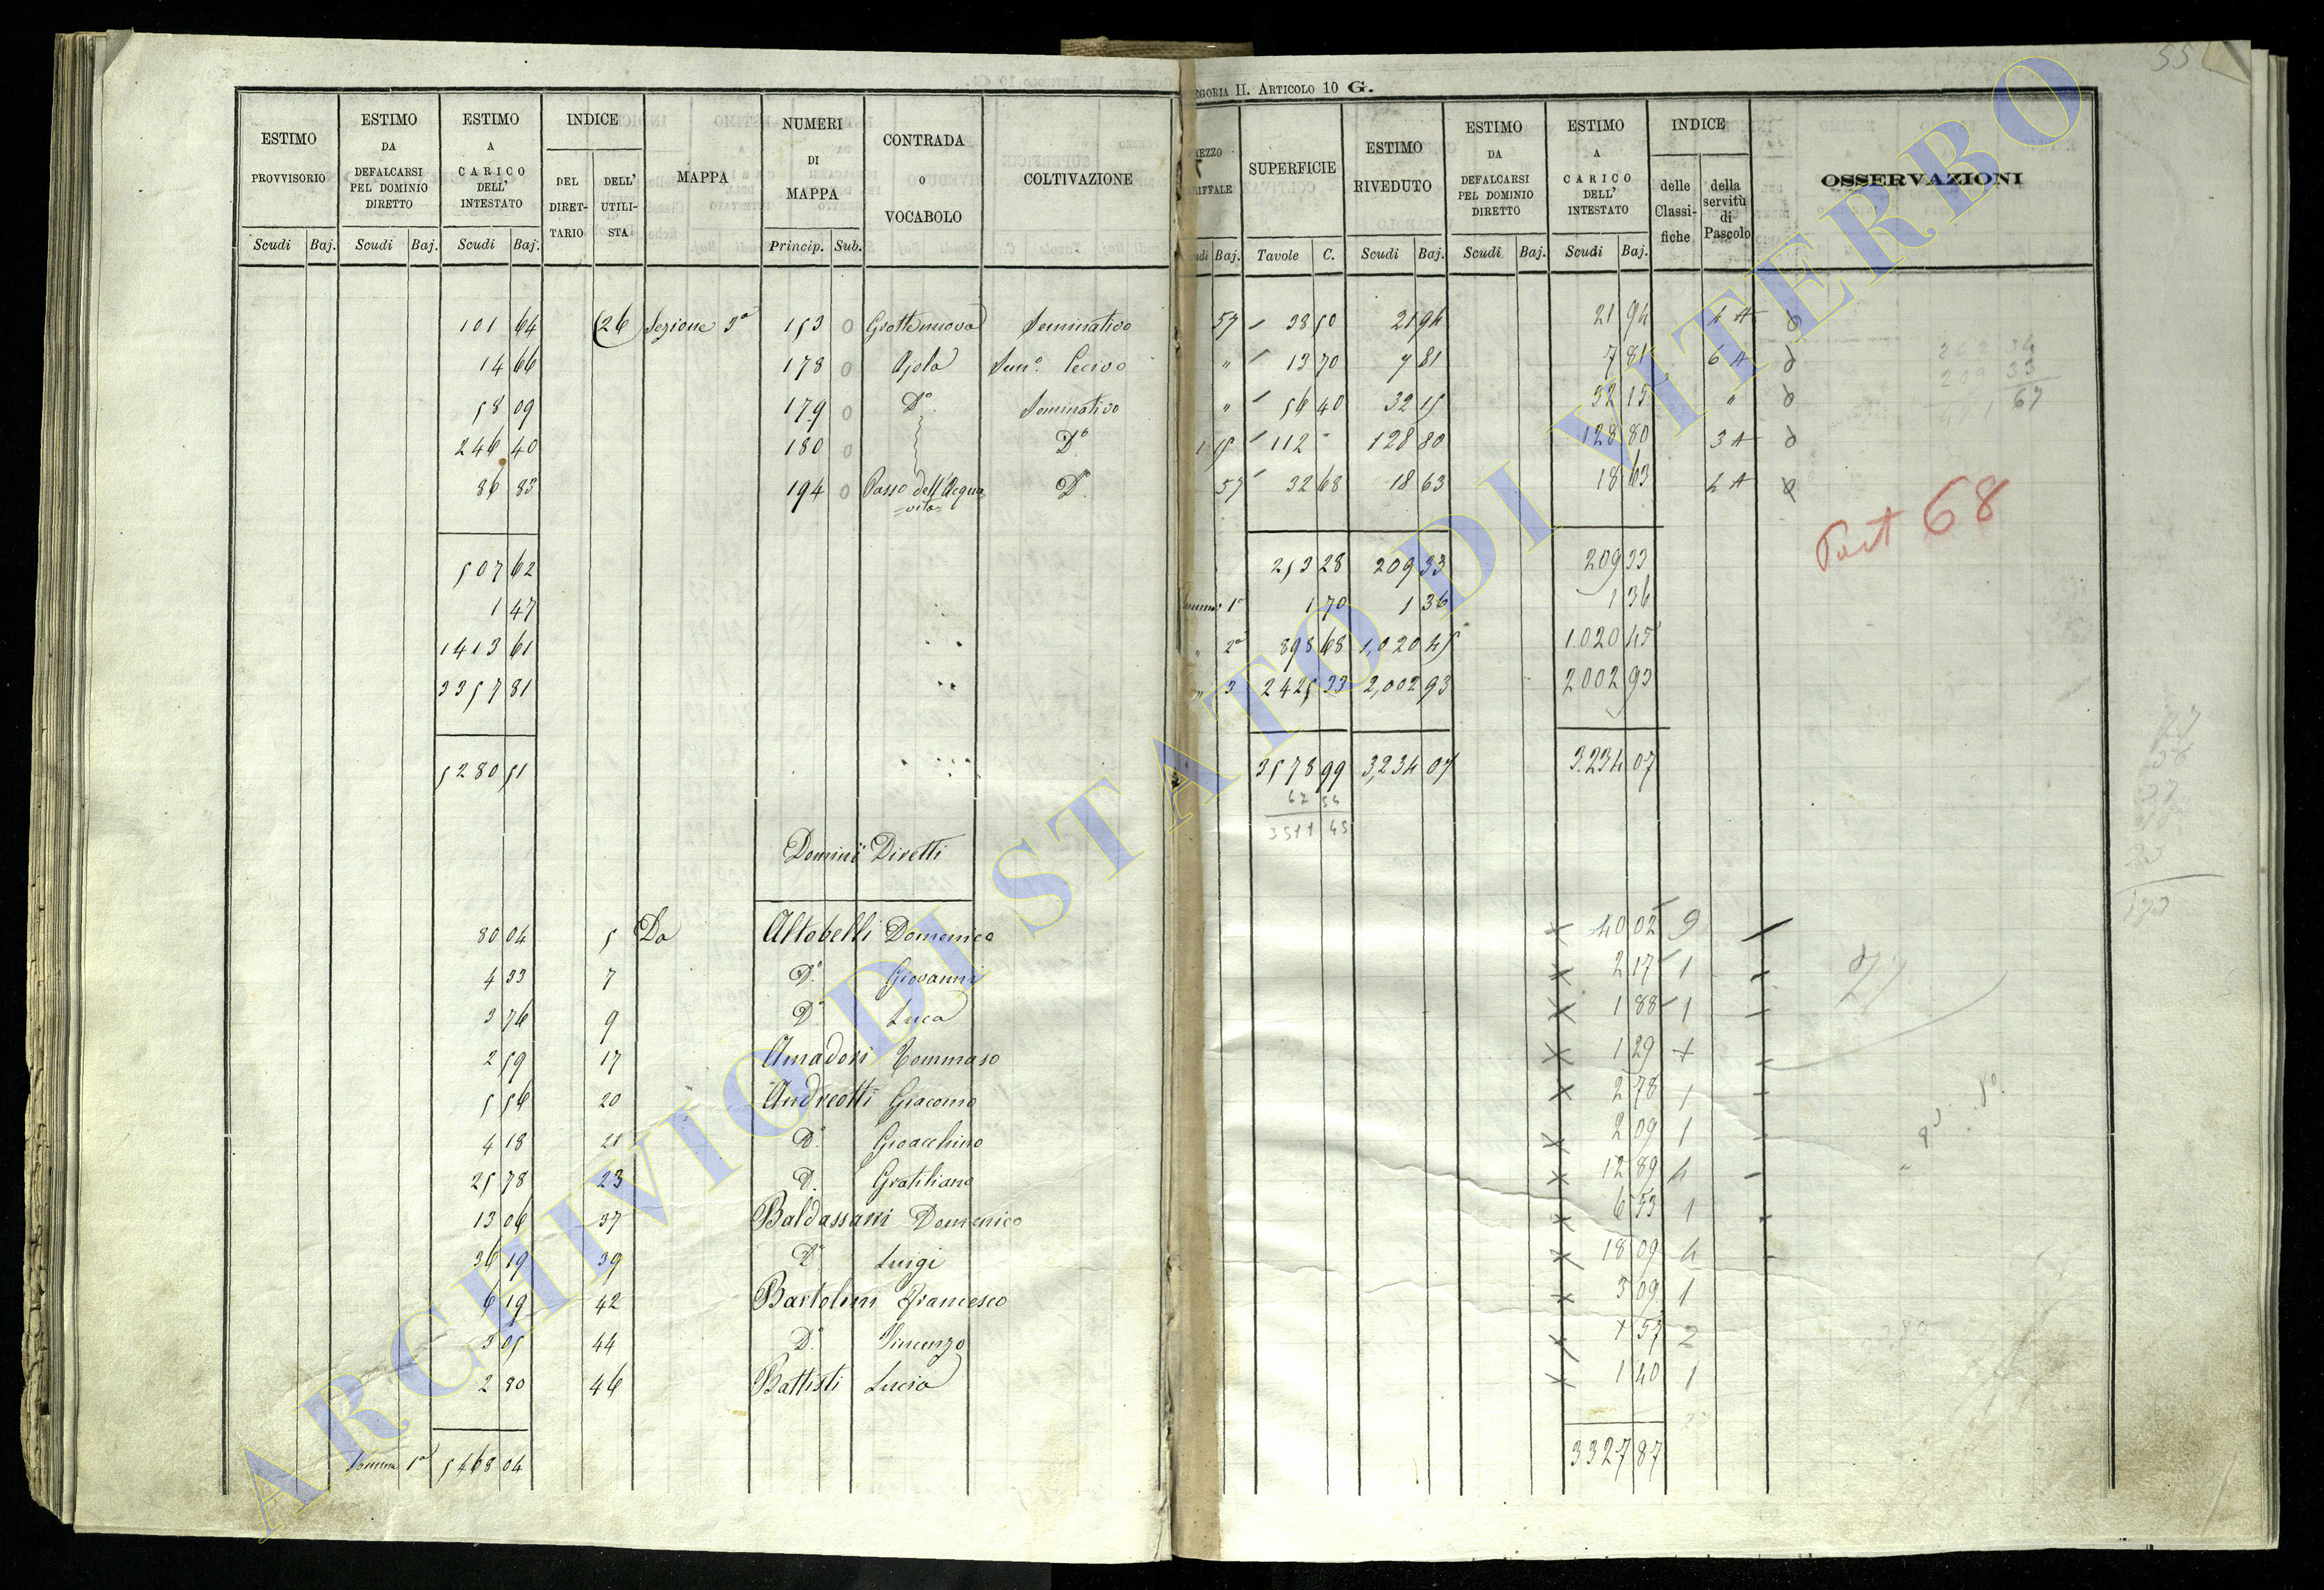 55
EGORIA II. ARTICOLO 10 G.
ESTIMO PROVVISORIO Scudi Baj.
ESTIMO DA DEFALCARSI PEL DOMINIO DIRETTO Scudi Baj.
ESTIMO A CARICO DELL' INTESTATO Scudi Baj.
INDICE DEL DIRET-TARIO DELL' UTILI-STA
MAPPA
NUMERI DI MAPPA Princip. Sub.
CONTRADA O VOCABOLO
COLTIVAZIONE
REZZO RIFFALE udi Baj.
SUPERFICIE Tavole C.
ESTIMO RIVEDUTO Scudi Baj.
ESTIMO DA DEFALCARSI PEL DOMINIO DIRETTO Scudi Baj.
ESTIMO A CARICO DELL' INTESTATO Scudi Baj.
INDICE delle Classi-fiche della servitù di Pascolo
OSSERVAZIONI
101 64 26 Sezione 3a 153 0 Grottenuova Seminativo 57 38 50 21 94 21 94 4 A
14 66 178 0 Semo. " 13 70 7 81 7 81 6 A
58 09 179 0 Do. Seminativo " 56 40 32 15 32 15 "
246 40 180 0 Do 1 15 112 - 128 80 128 80 3 A
86 83 194 0 Passo dell'Acqua vita Do 57 32 68 18 63 18 63 4 A
Part 68
507 62 253 28 209 33 209 33
1 47 1a 1 70 1 36 1 36
1413 61 " 2a 898 68 1,020 45 1.020 45
3357 81 3 2425 33 2,002 93 2002 93
5280 51 3578 99 3,234 07 3.234 07
67 54
3511 45
Dominii Diretti
80 04 5 Da Altobelli Domenico 40 02 9
4 33 7 Do. Giovanni 2 17 1
3 76 9 Do Luca 1 88 1
2 59 17 Amadori Tommaso 1 29
5 56 20 Andreotti Giacomo 2 78 1
4 18 21 Do. Gioacchino 2 09 1
25 78 23 D. Gratiliano 12 89 4
13 06 37 Baldassarri Domenico 6 53 1
36 19 39 Do Luigi 18 09 4
6 19 42 Bartolini Francesco 3 09 1
3 05 44 Do. Vincenzo 1 53 2
2 80 46 Battisti Lucia 1 40 1
Somma 1a 5468 04 3327 87
ARCHIVIO DI STATO DI VITERBO